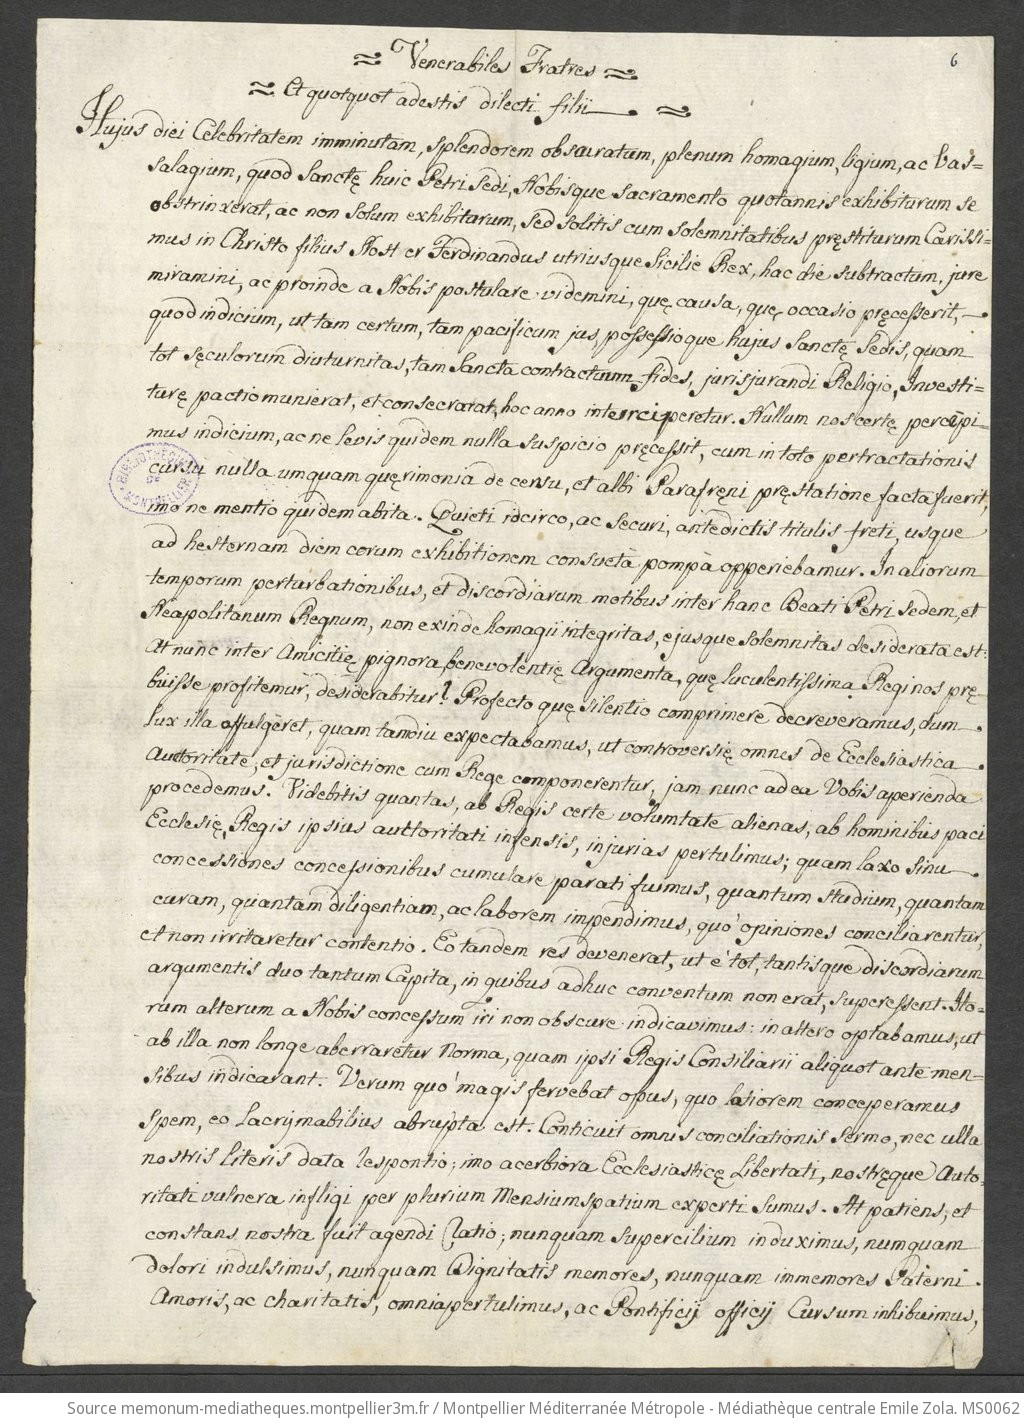 6
Venerabiles Fratres
Et quotquot adestis dilecti filii
Hujus diei Celebritatem imminutam, splendorem obscuratum, plenum homagium, ligium, ac Vas=
salagium, quod Sanctę huic Petri Sedi, Nobisque sacramento quotannis exhibiturum se
obstrinxerat, ac non solum exhibiturum, sed solitis cum solemnitatibus pręstiturum Carissi=
mus in Christo filius Nost er Ferdinandus utriusque Sicilię Rex, hac die subtractum, jure
miramini, ac proinde a Nobis postulare videmini, quę causa, quę occasio pręcesserit,
quod indicium, ut tam certum, tam pacificum jus, possessioque hujus Sanctę Sedis, quam
tot sęculorum diuturnitas, tam Sancta contractuum fides, jurisjurandi Religio, Investi=
turę pactio munierat, et consecrarat, hoc anno interciperetur. Nullum nos certe percępi=
mus indicium, ac ne levis quidem nulla suspicio pręcessit, cum in toto pertractationis
cursu nulla umquam quęrimonia de censu, et albi Parafręni pręstatione facta fuerit,
imo ne mentio quidem abita. Quieti idcirco, ac securi, antedictis titulis freti, usque
ad hesternam diem eorum exhibitionem consuetà pompà opperiebamur. In aliorum
temporum perturbationibus, et discordiarum motibus inter hanc Beati Petri Sedem, et
Neapolitanum Regnum, non exinde homagii integritas, ejusque solemnitas desiderata est:
At nunc inter Amicitię pignora, benevolentię Argumenta, quę luculentissima Regi nos prę
buisse profitemur, desiderabitur? Profecto quę silentio comprimere decreveramus, dum
lux illa affulgeret, quam tamdiu expectabamus, ut controversię omnes de Ecclesiastica
Auctoritate, et jurisdictione cum Rege componerentur, jam nunc ad ea Vobis aperienda
procedemus. Videbitis quantas, ab Regis certe voluntate alienas, ab hominibus paci
Ecclesię, Regis ipsius auttoritati infensis, injurias pertulimus; quam laxo sinu
concessiones concessionibus cumulare parati fuimus, quantum studium, quantam
curam, quantam diligentiam, ac laborem impendimus, quò opiniones conciliarentur,
et non irritaretur contentio. Eo tandem res devenerat, ut è tot, tantisque discordiarum
argumentis duo tantum Capita, in quibus adhuc conventum non erat, superessent. Ho=
rum alterum a Nobis concessum iri non obscure indicavimus: in altero optabamus, ut
ab illa non longe aberraretur norma, quam ipsi Regis Consiliarii aliquot ante men=
sibus indicarant. Verum quò magis fervebat opus, quo latiorem conceperamus
spem, eo Lacrymabilius abrupta est. Conticuit omnis conciliationis sermo, nec ulla
nostris literis data responsio; imo acerbiora Ecclesiasticę Libertati, nostręque Auto=
ritati vulnera infligi per plurium Mensium spatium experti sumus. At patiens, et
constans nostra fuit agendi Ratio; nunquam supercilium induximus, numquam
dolori indulsimus, nunquam Dignitatis memores, nunquam immemores Paterni
Amoris, ac charitatis, omnia pertulimus, ac Pontificij officij Cursum inhibuimus,
BIBLIOTHEQUE DE MONTPELLIER
Source memonum-mediatheques.montpellier3m.fr / Montpellier Méditerranée Métropole - Médiathèque centrale Emile Zola. MS0062